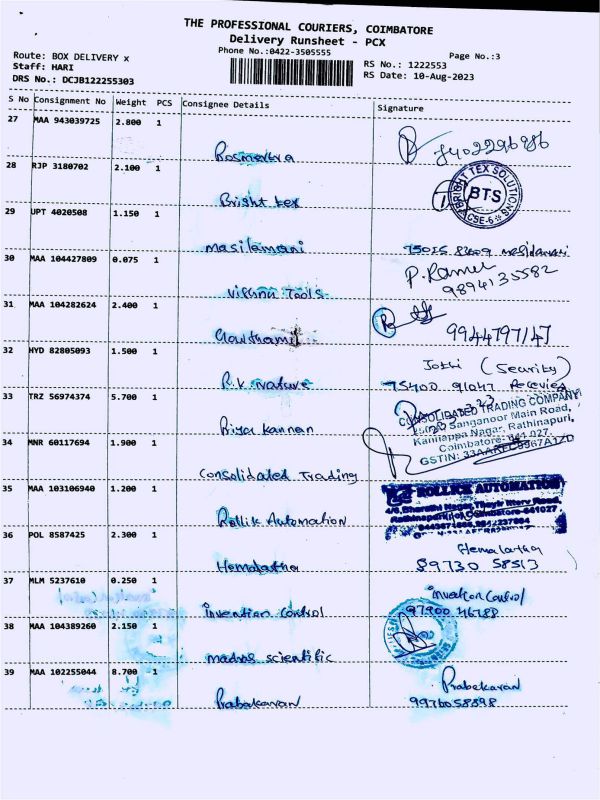 THE PROFESSIONAL COURIERS, COIMBATORE
Delivery Runsheet - PCX
Phone No.:0422-3505555
Page No.:3
Route: BOX DELIVERY x
Staff: HARI
DRS No.: DCJB122255303
RS No.: 1222553
RS Date: 10-Aug-2023
S No Consignment No Weight PCS Consignee Details Signature
27 MAA 943039725 2.800 1
28 RJP 3180702 2.100 1 Bright tex
BRIGHT TEX SOLUTIONS
BTS
29 UPT 4020508 1.150 1 Masilamani
30 MAA 104427809 0.075 1 Vishnu Tools
9894135582
31 MAA 104282624 2.400 1 Gowthamil
9944797147
32 HYD 82805093 1.500 1 R.K nature
Jothi (Security)
33 TRZ 56974374 5.700 1 Priya kannan
CONSOLIDATED TRADING COMPANY
Sanganoor Main Road,
Kannappa Nagar, Rathinapuri,
Coimbatore- 641 027.
34 MNR 60117694 1.900 1 Consolidated Trading
35 MAA 103106940 1.200 1 Rollik Automation
ROLLICK AUTOMATION
36 POL 8587425 2.300 1 Hemalatha
Hemalatha
89730 58513
37 MLM 5237610 0.250 1 Invention Control
Invention Control
97900 46788
38 MAA 104389260 2.150 1 madras scientific
39 MAA 102255044 8.700 1 Prabakaran
Prabakaran
9976058898